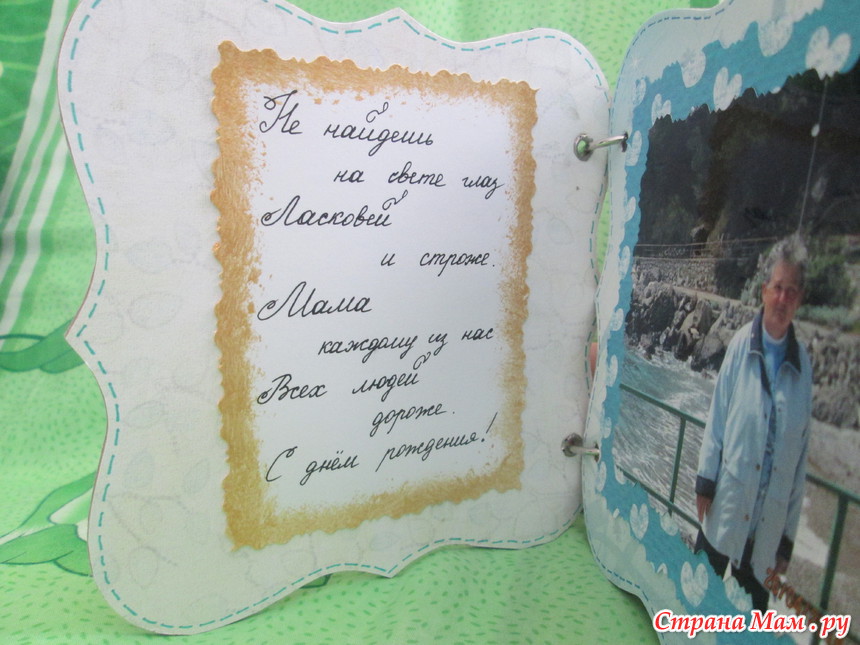 Не найдешь
на свете глаз
Ласковей
и строже.
Мама
каждому из нас
Всех людей
дороже.
С днём рождения!
Страна Мам.ру